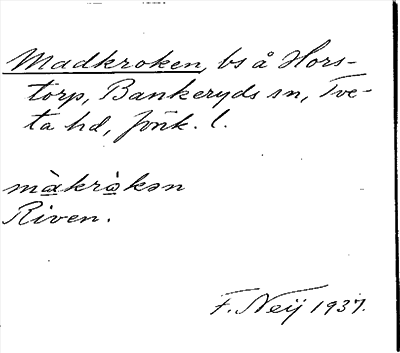 Madkroken, bs å Hors-
torp, Bankeryds sn, Tve-
ta hd, Jönk. l.
màkrò̱kən
Riven.
F. Neij 1937.